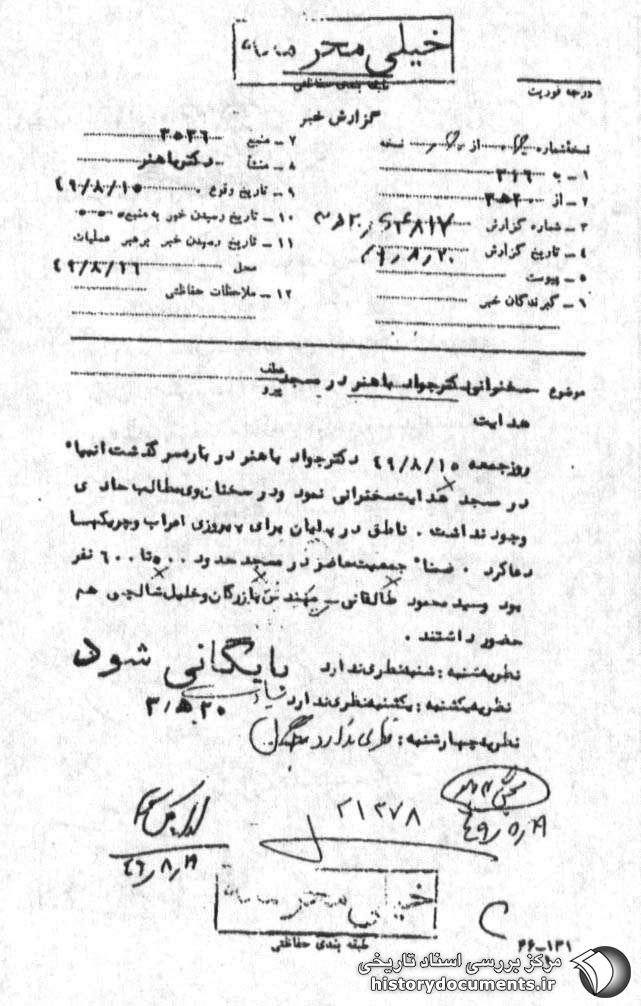 خیلی محرمانه
طبقه بندی حفاظتی
درجه فوریت
گزارش خبر
نسخه شماره از نسخه
۱ - به ۳۱۶
۲ - از ۳۵۲۰
۳ - شماره گزارش
۴ - تاریخ گزارش ۴۹/۸/۲۰
۵ - پیوست
۶ - گیرندگان خبر
۷ - منبع ۳۵۳۶
۸ - منشأ دکتر باهنر
۹ - تاریخ وقوع ۴۹/۸/۱۵
۱۰ - تاریخ رسیدن خبر به منبع
۱۱ - تاریخ رسیدن خبر برهبر عملیات
محل ۴۹/۸/۱۶
۱۲ - ملاحظات حفاظتی
موضوع سخنرانی دکتر جواد باهنر در مسجد
عطف
پیرو
هدایت
روز جمعه ۴۹/۸/۱۵ دکتر جواد باهنر در باره سرگذشت انبیاء
در مسجد هدایت سخنرانی نمود و در سخنان وی مطالب حادی
وجود نداشت . ناطق در پایان برای پیروزی اعراب و چریکها
دعا کرد . ضمنا" جمعیت حاضر در مسجد حدود ۵۰۰ تا ۶۰۰ نفر
بود و سید محمود طالقانی - مهندس بازرگان و خلیل شالچی هم
حضور داشتند .
نظریه شنبه : شنبه نظری ندارد
بایگانی شود
نظریه یکشنبه : یکشنبه نظری ندارد
نظریه چهارشنبه : نظری ندارد
۲۱۲۷۸
خیلی محرمانه
طبقه بندی حفاظتی
۴۶-۱۳۱
مرکز بررسی اسناد تاریخی
historydocuments.ir